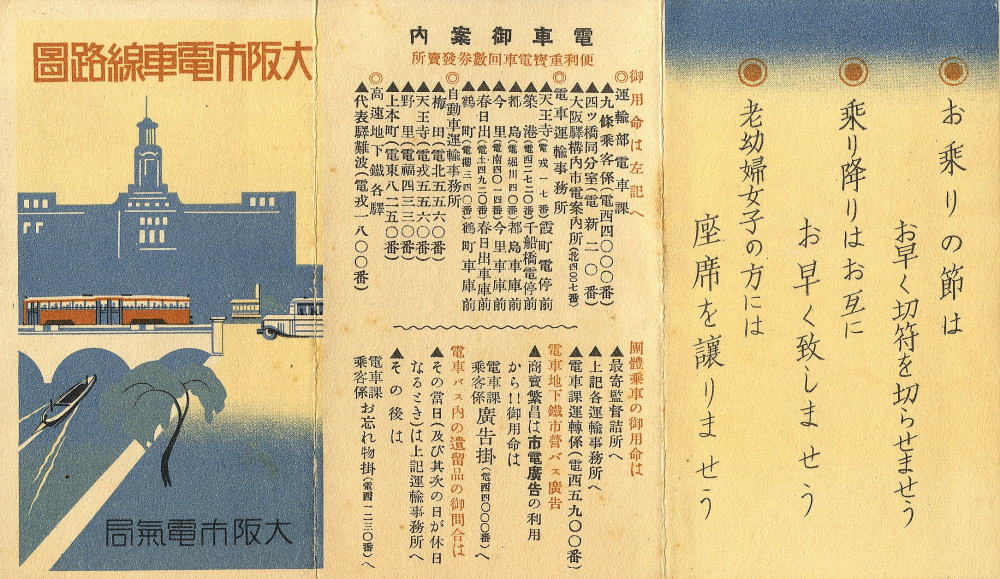 大阪市電車線路圖
大阪市電氣局
電車御案内
便利重寶電車回數券發賣所
御用命は左記へ
◎運輸部電車課
▲九條乘客係(電西四〇〇〇番)
▲四ツ橋同分室(電新二〇番)
▲大阪驛構内市電案内所(北四〇〇七番)
◎電車運輸事務所
▲天王寺(電戎一七番)霞町電停前
▲築港(電西二七二〇番)千船橋電停前
▲都島(電堀川四〇番)都島車庫前
▲今里(電南四〇一四番)今里車庫前
▲春日出(電土四九二〇番)春日出車庫前
▲鶴町(電櫻三四〇番)鶴町車庫前
◎自動車運輸事務所
▲梅田(電北五五六〇番)
▲天王寺(電戎五五六〇番)
▲野里(電福四三三〇番)
▲上本町(電東八二五〇番)
◎高速地下鐵各驛
▲代表驛難波(電戎一八〇〇番)
團體乘車の御用命は
▲最寄監督詰所へ
▲上記各運輸事務所へ
▲電車課運轉係(電西五九〇〇番)
電車地下鐵市營バス廣告
▲商賣繁昌は市電廣告の利用
から!!御用命は
電車課乘客係廣告掛(電西四〇〇〇番)へ
電車バス内の遺留品の御問合は
▲その當日(及び其次の日が休日
なるとき)は上記運輸事務所へ
▲その後は
電車課乘客係お忘れ物掛(電西一二三〇番)へ
◎お乘りの節は
お早く切符を切らせませう
◎乘り降りはお互に
お早く致しませう
◎老幼婦女子の方には
座席を讓りませう